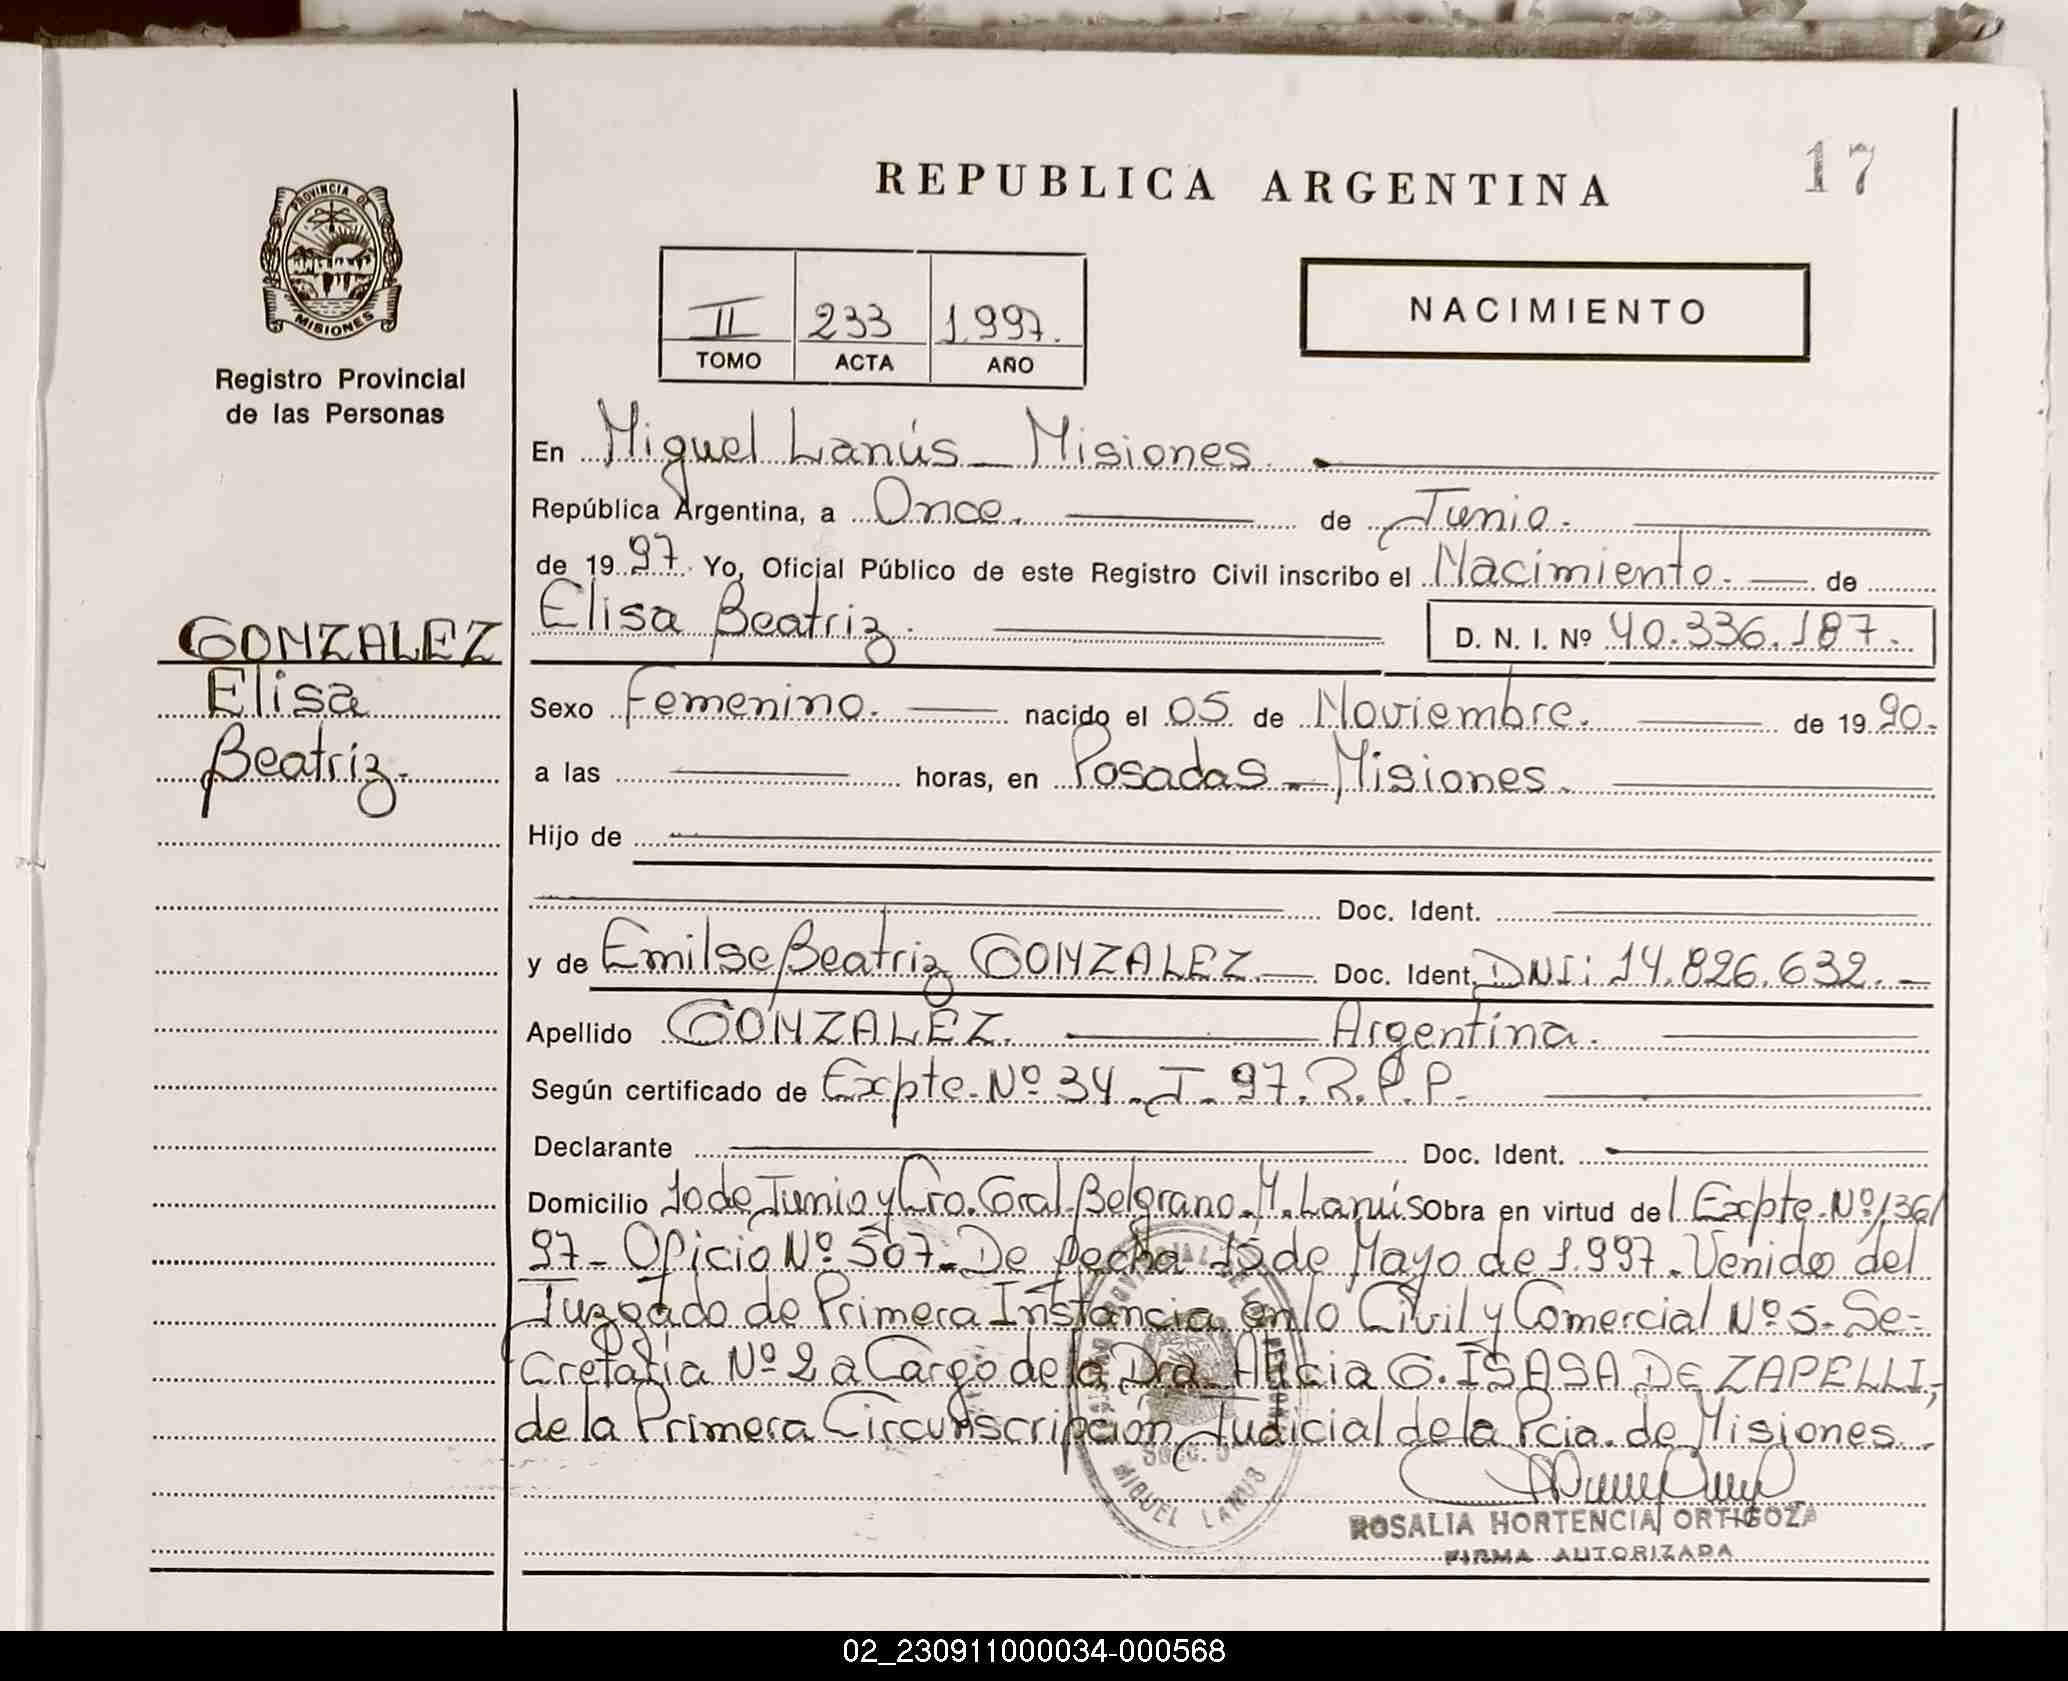 17
REPUBLICA ARGENTINA
PROVINCIA DE
MISIONES
Registro Provincial
de las Personas
II 233 1.997.
TOMO ACTA AÑO
NACIMIENTO
En Miguel Lanús - Misiones
República Argentina, a Once. de Junio.
de 19 97. Yo, Oficial Público de este Registro Civil inscribo el Nacimiento. de
Elisa Beatriz. D. N. I. Nº 40.336.187.
GONZALEZ
Elisa
Beatriz.-
Sexo Femenino. nacido el 05 de Noviembre. de 19 90.
a las horas, en Posadas - Misiones.
Hijo de
Doc. Ident.
y de Emilse Beatriz GONZALEZ. Doc. Ident. DNI: 14.826.632.-
Apellido GONZALEZ. Argentina.
Según certificado de Expte. Nº 34. J. 97. R.P.P.
Declarante Doc. Ident.
Domicilio 10 de Junio y Cro. Gral. Belgrano. M. Lanús Obra en virtud del Expte. Nº 136/
97 - Oficio Nº 507 - De fecha de Mayo de 1.997. Venido del
Juzgado de Primera Instancia en lo Civil y Comercial Nº 5 - Se-
cretaria Nº 2 a Cargo de la Dra. Alicia G. ISASA DE ZAPELLI,
de la Primera Circunscripción Judicial de la Pcia. de Misiones.
MIGUEL LANUS
ROSALIA HORTENCIA ORTIGOZA
FIRMA AUTORIZADA
02_230911000034-000568